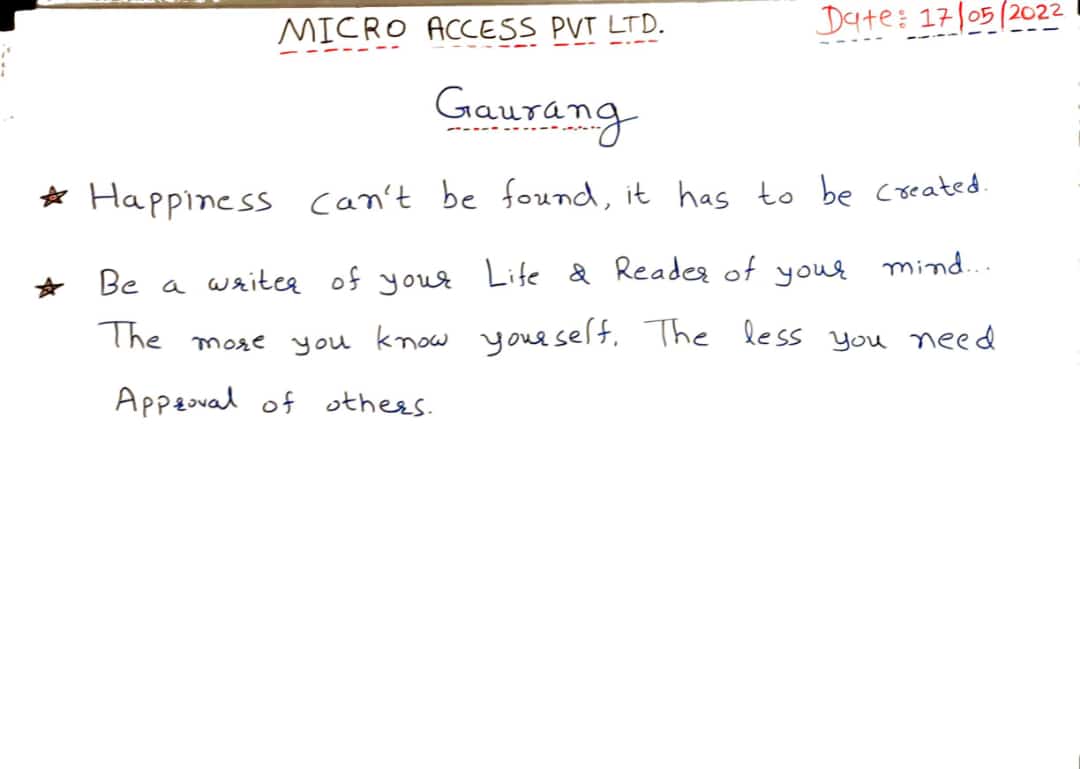 MICRO ACCESS PVT LTD. Date: 17/05/2022
Gaurang
★ Happiness can't be found, it has to be created.
★ Be a writer of your Life & Reader of your mind...
The more you know yourself. The less you need
Approval of others.